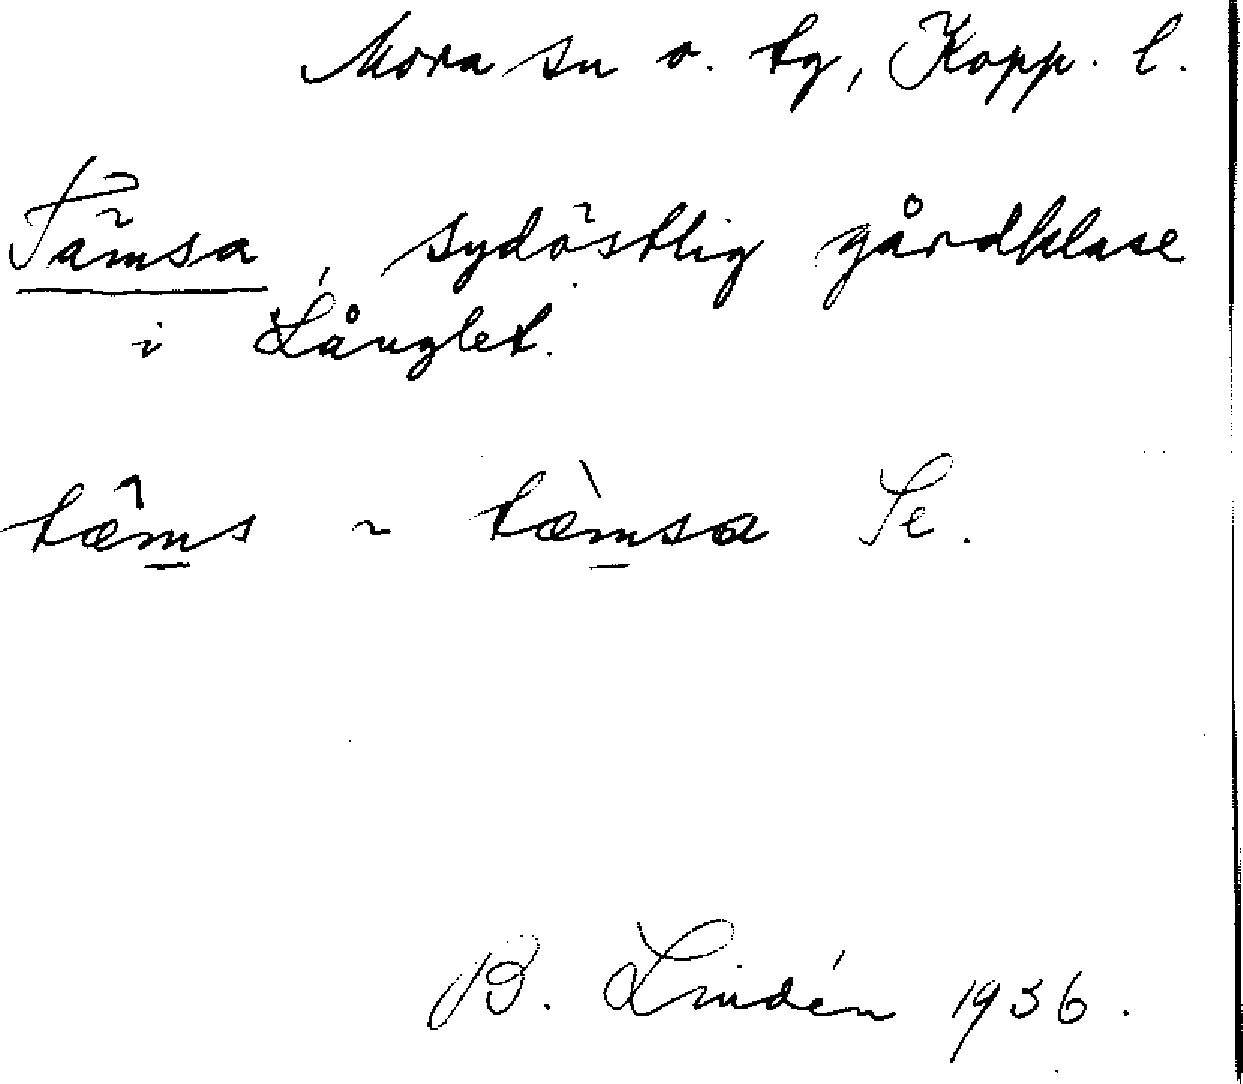 Mora sn o. tg, Kopp. l.
Tämsa, sydöstlig gårdklase
i Långlet.
tæ̂m̲s ~ tæ̀m̲sa Se.
B. Lindén 1936.